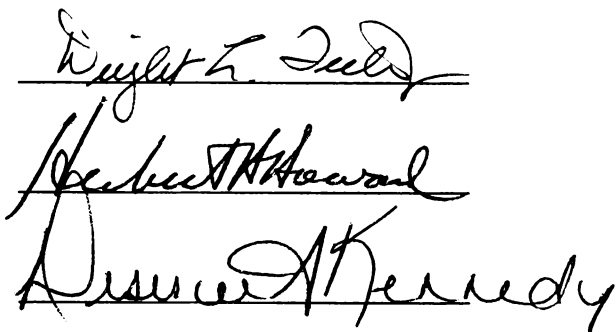 Dwight L. Teeter
Herbert H Howard
Kennedy